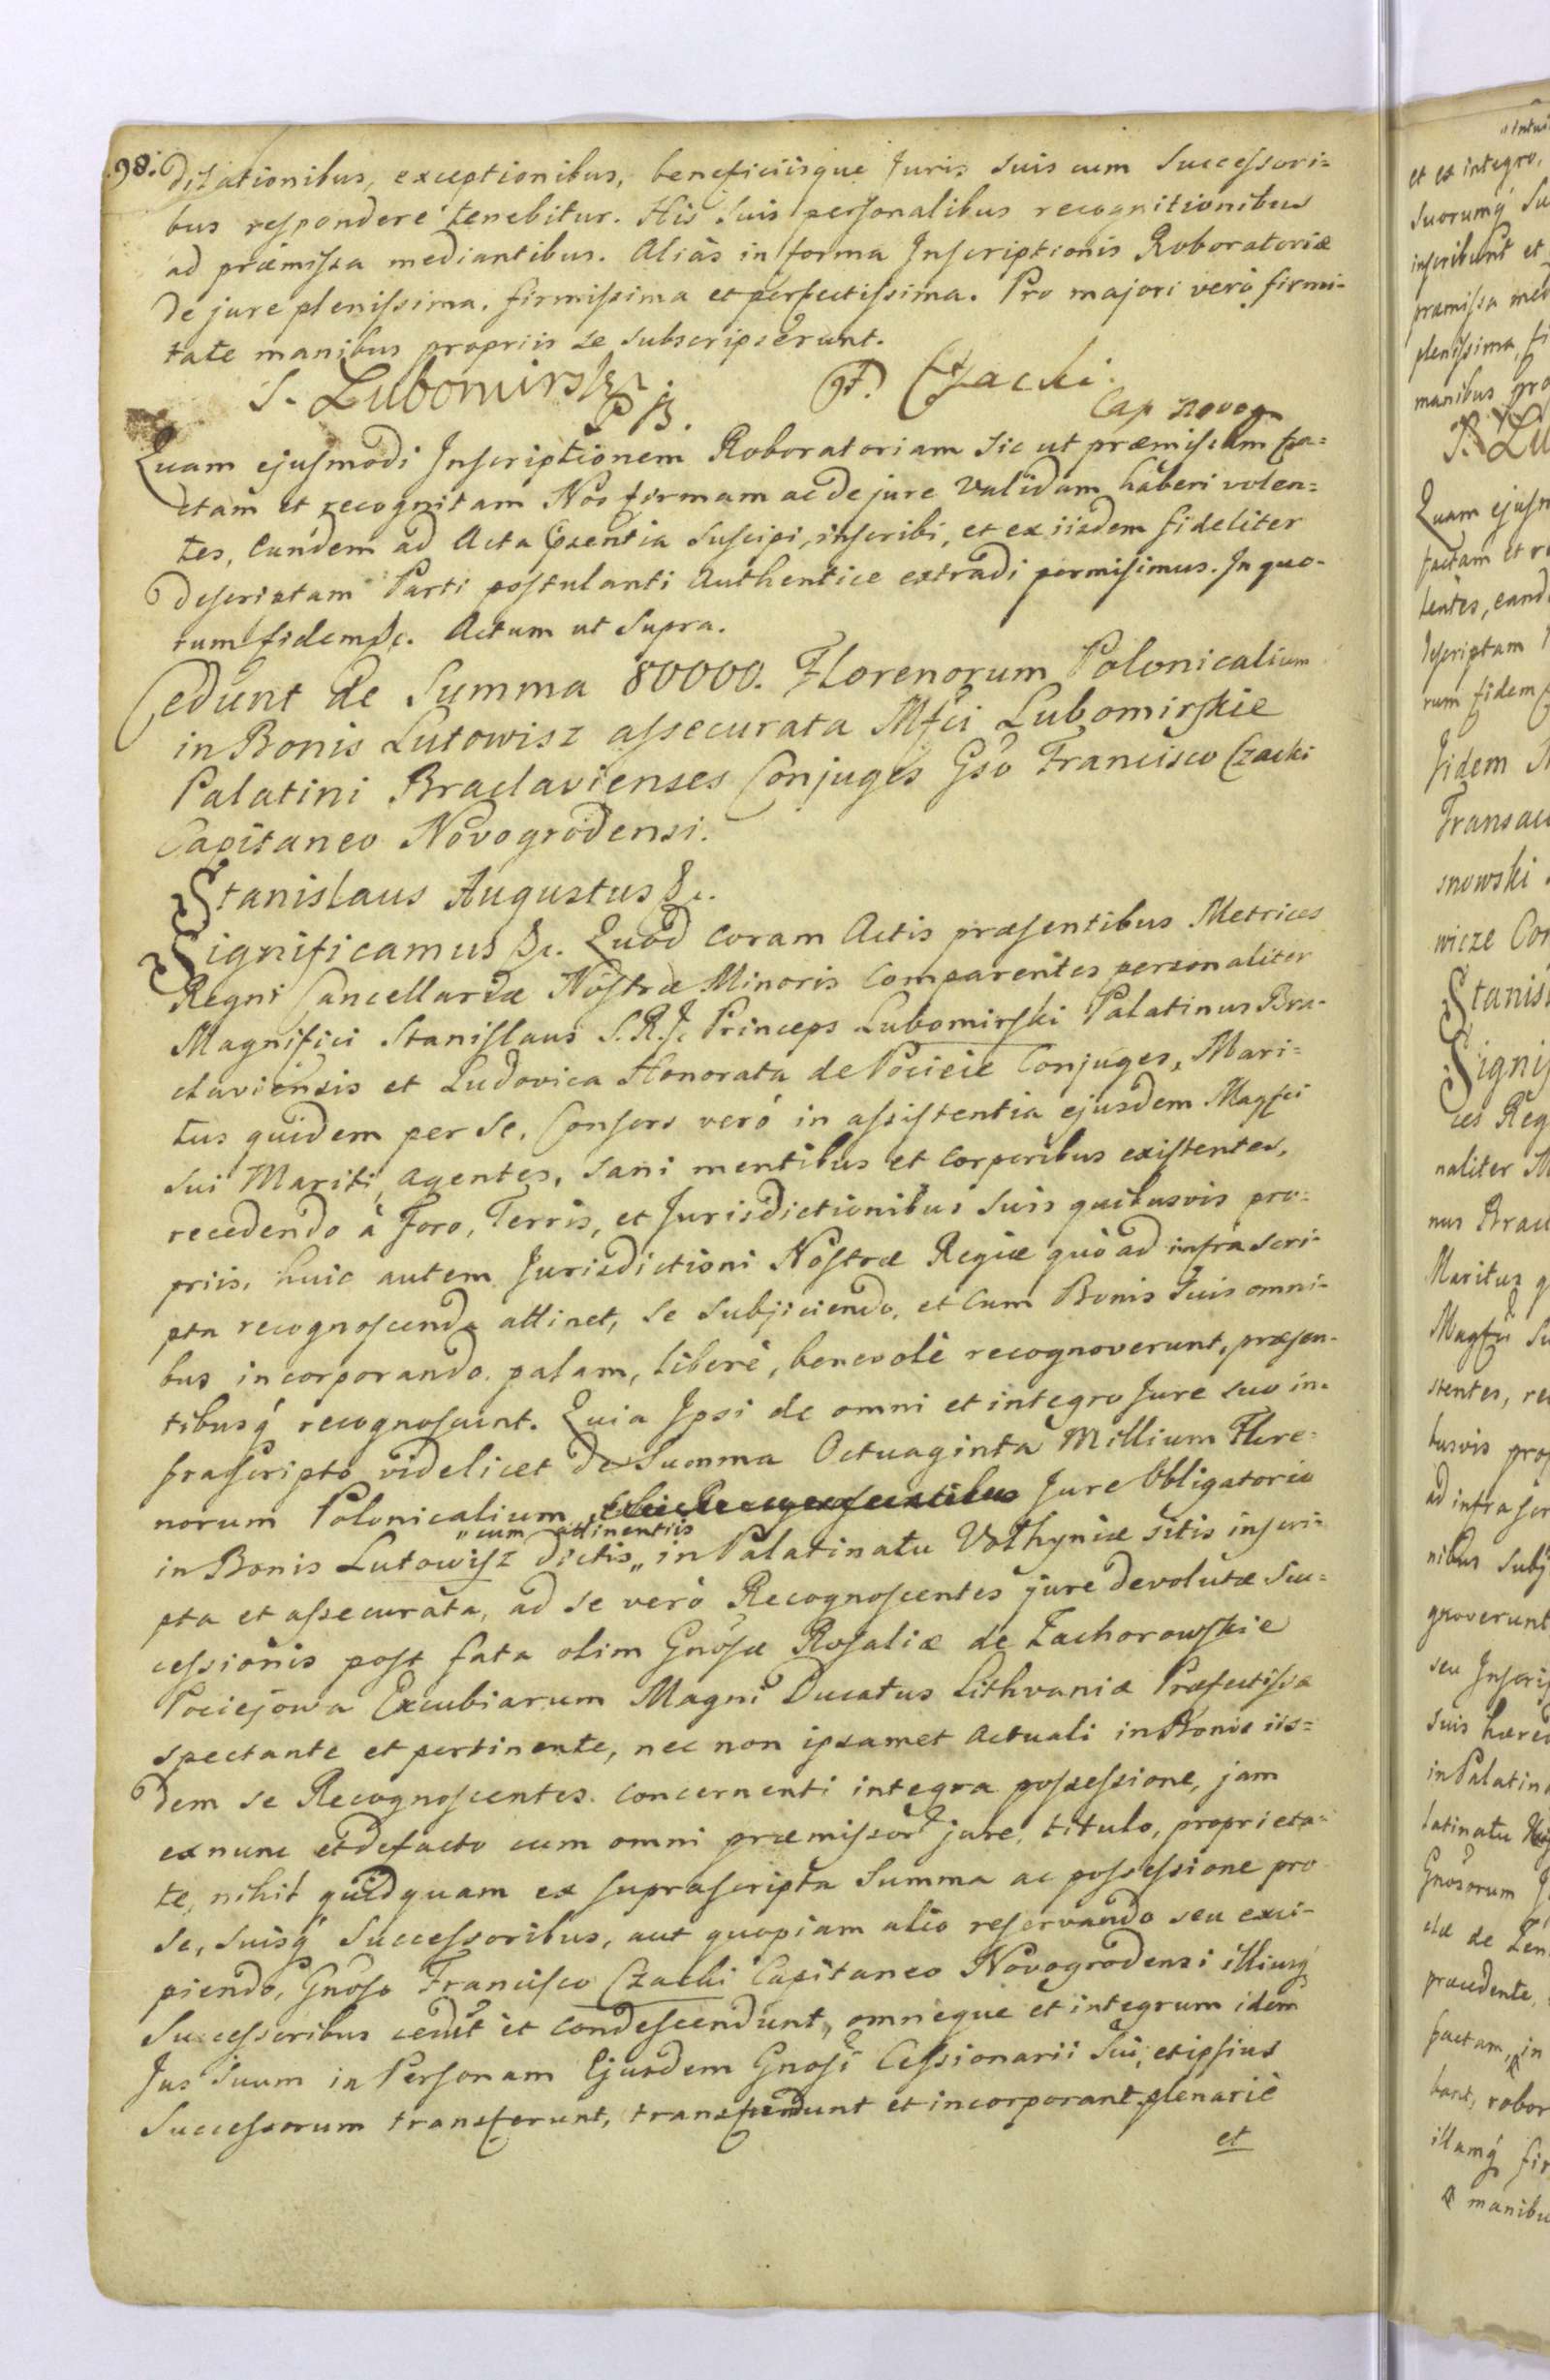 98.
dilationibus, exceptionibus, beneficiisque Juris suis cum Successori=
bus respondere tenebitur. His suis personalibus recognitionibus
ad præmissa mediantibus. Aliàs in forma Inscriptionis Roboratoriæ
de jure plenissima, firmissima et perfectissima. Pro majori verò firmi-
tate manibus propriis se subscripserunt.
S. Lubomirski F. Czacki.
P B. Cap novog
Quam ejusmodi Inscriptionem Roboratoriam sic ut præmissum fa=
ctam et recognitam Nos firmam ac de jure validam haberi volen=
tes, eandem ad Acta præsentia suscipi, inscribi, et ex iisdem fideliter
descriptam Parti postulanti Authentice extradi permisimus. In quo-
rum fidem &c. Actum ut supra.
Cedunt de Summa 80000. Florenorum Polonicalium
in Bonis Lutowisz assecurata Mfci Lubomirskie
Palatini Braclavienses Conjuges Gso Francisco Czacki
Capitaneo Novogrodensi.
Stanislaus Augustus &c.
Significamus &c. Quod coram Actis præsentibus Metrices
Regni Cancellariæ Nostræ Minoris Comparentes personaliter
Magnifici Stanislaus S. R. J. Princeps Lubomirski Palatinus Bra-
claviensis et Ludovica Honorata de Pocieie Conjuges, Mari=
tus quidem per se, Consors verò in assistentia ejusdem Magfci
sui Mariti, agentes, sani mentibus et corporibus existentes,
recedendo à Foro, Terris, et Jurisdictionibus suis quibusvis pro=
priis, huic autem Jurisdictioni Nostræ Regiæ quò ad infra scri-
pta recognoscenda attinet, se subjiciendo, et cum Bonis suis omni-
bus incorporando, palam, liberè, benevolè recognoverunt, præsen-
tibusq́ recognoscunt. Quia Ipsi de omni et integro Jure suo in-
frascripto videlicet de Summa Octuaginta Millium Flore=
norum Polonicalium, Jure Obligatorio
„cum attinentiis
in Bonis Lutowisz dictis„ in Palatinatu Volhyniæ sitis inscri=
pta et assecurata, ad se verò Recognoscentes jure devolutæ suc=
cessionis post fata olim Gnosæ Rosaliæ de Zachorowskie
Pociejowa Excubiarum Magni Ducatus Lithvaniæ Præfectissæ
spectante et pertinente, nec non ipsamet actuali in Bonis iis=
dem se Recognoscentes concernenti integra possessione, jam
ex nunc et de facto cum omni præmissor jure, titulo, proprieta=
te, nihil quidquam ex suprascripta Summa ac possessione pro
se, suisq́ successoribus, aut quopiam alio reservando seu exci-
piendo, Gnoso Francisco Czacki Capitaneo Novogrodensi illiusq́
Successoribus cedut et condescendunt, omneque et integrum idem
Jus suum in Personam Ejusdem Gnosi Cessionarii sui, et ipsius
Successorum transferunt, transfundunt et incorporant plenariè
et
et ex integro,
suorumq́ su
inscribunt et
præmissa med
plenissima, fi
manibus pro
S. Lu
Quam ejusm
factam et re
lentes, eand
descriptam
rum fidem
Fidem
Transac
snowski
wicze Con
Stanis
Signif
ces Reg
naliter M
nus Brac
Maritus q
Magfci su
stentes, re
busvis prop
ad infra scr
nibus subj
gnoverunt
seu Inscrip
suis hæred
in Palatin
latinatu
Gnosorum
de Zen
præcedente,
factam, in
bant, robor
illamq́ fir
manibu